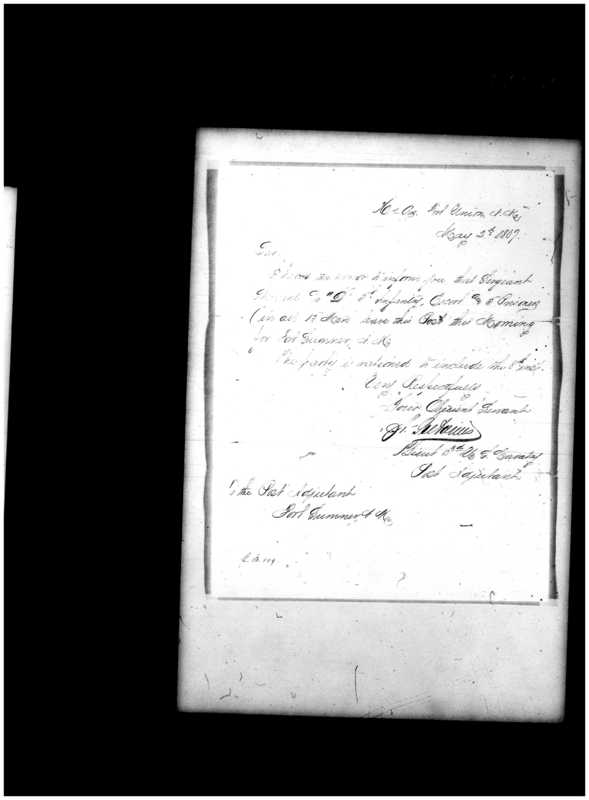 Hd Qrs. Fort Union, N. M.
May 2d 1867.
Sir,
I have the honor to inform you that Sergeant
Co "D" 5th Infantry, Escort to 5
(in all 12 Men leave this Post this Morning
for Fort Sumner, N. M.
The party is rationed to include the inst.
Very Respectfully
Your Obedient Servant
Lieut 3d U. S. Cavalry
Post Adjutant
To the Post Adjutant
Fort Sumner, N. M.